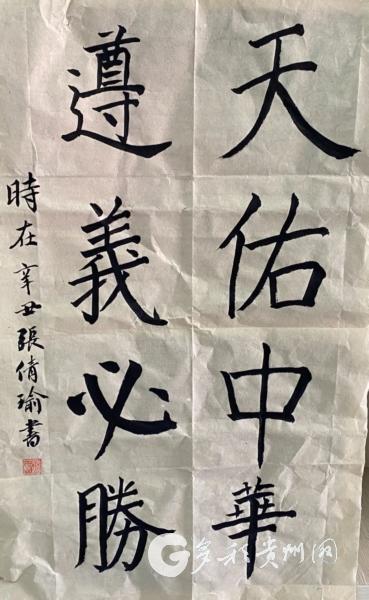 天佑中華
遵義必勝
時在辛丑張倩瑜書
多彩贵州网